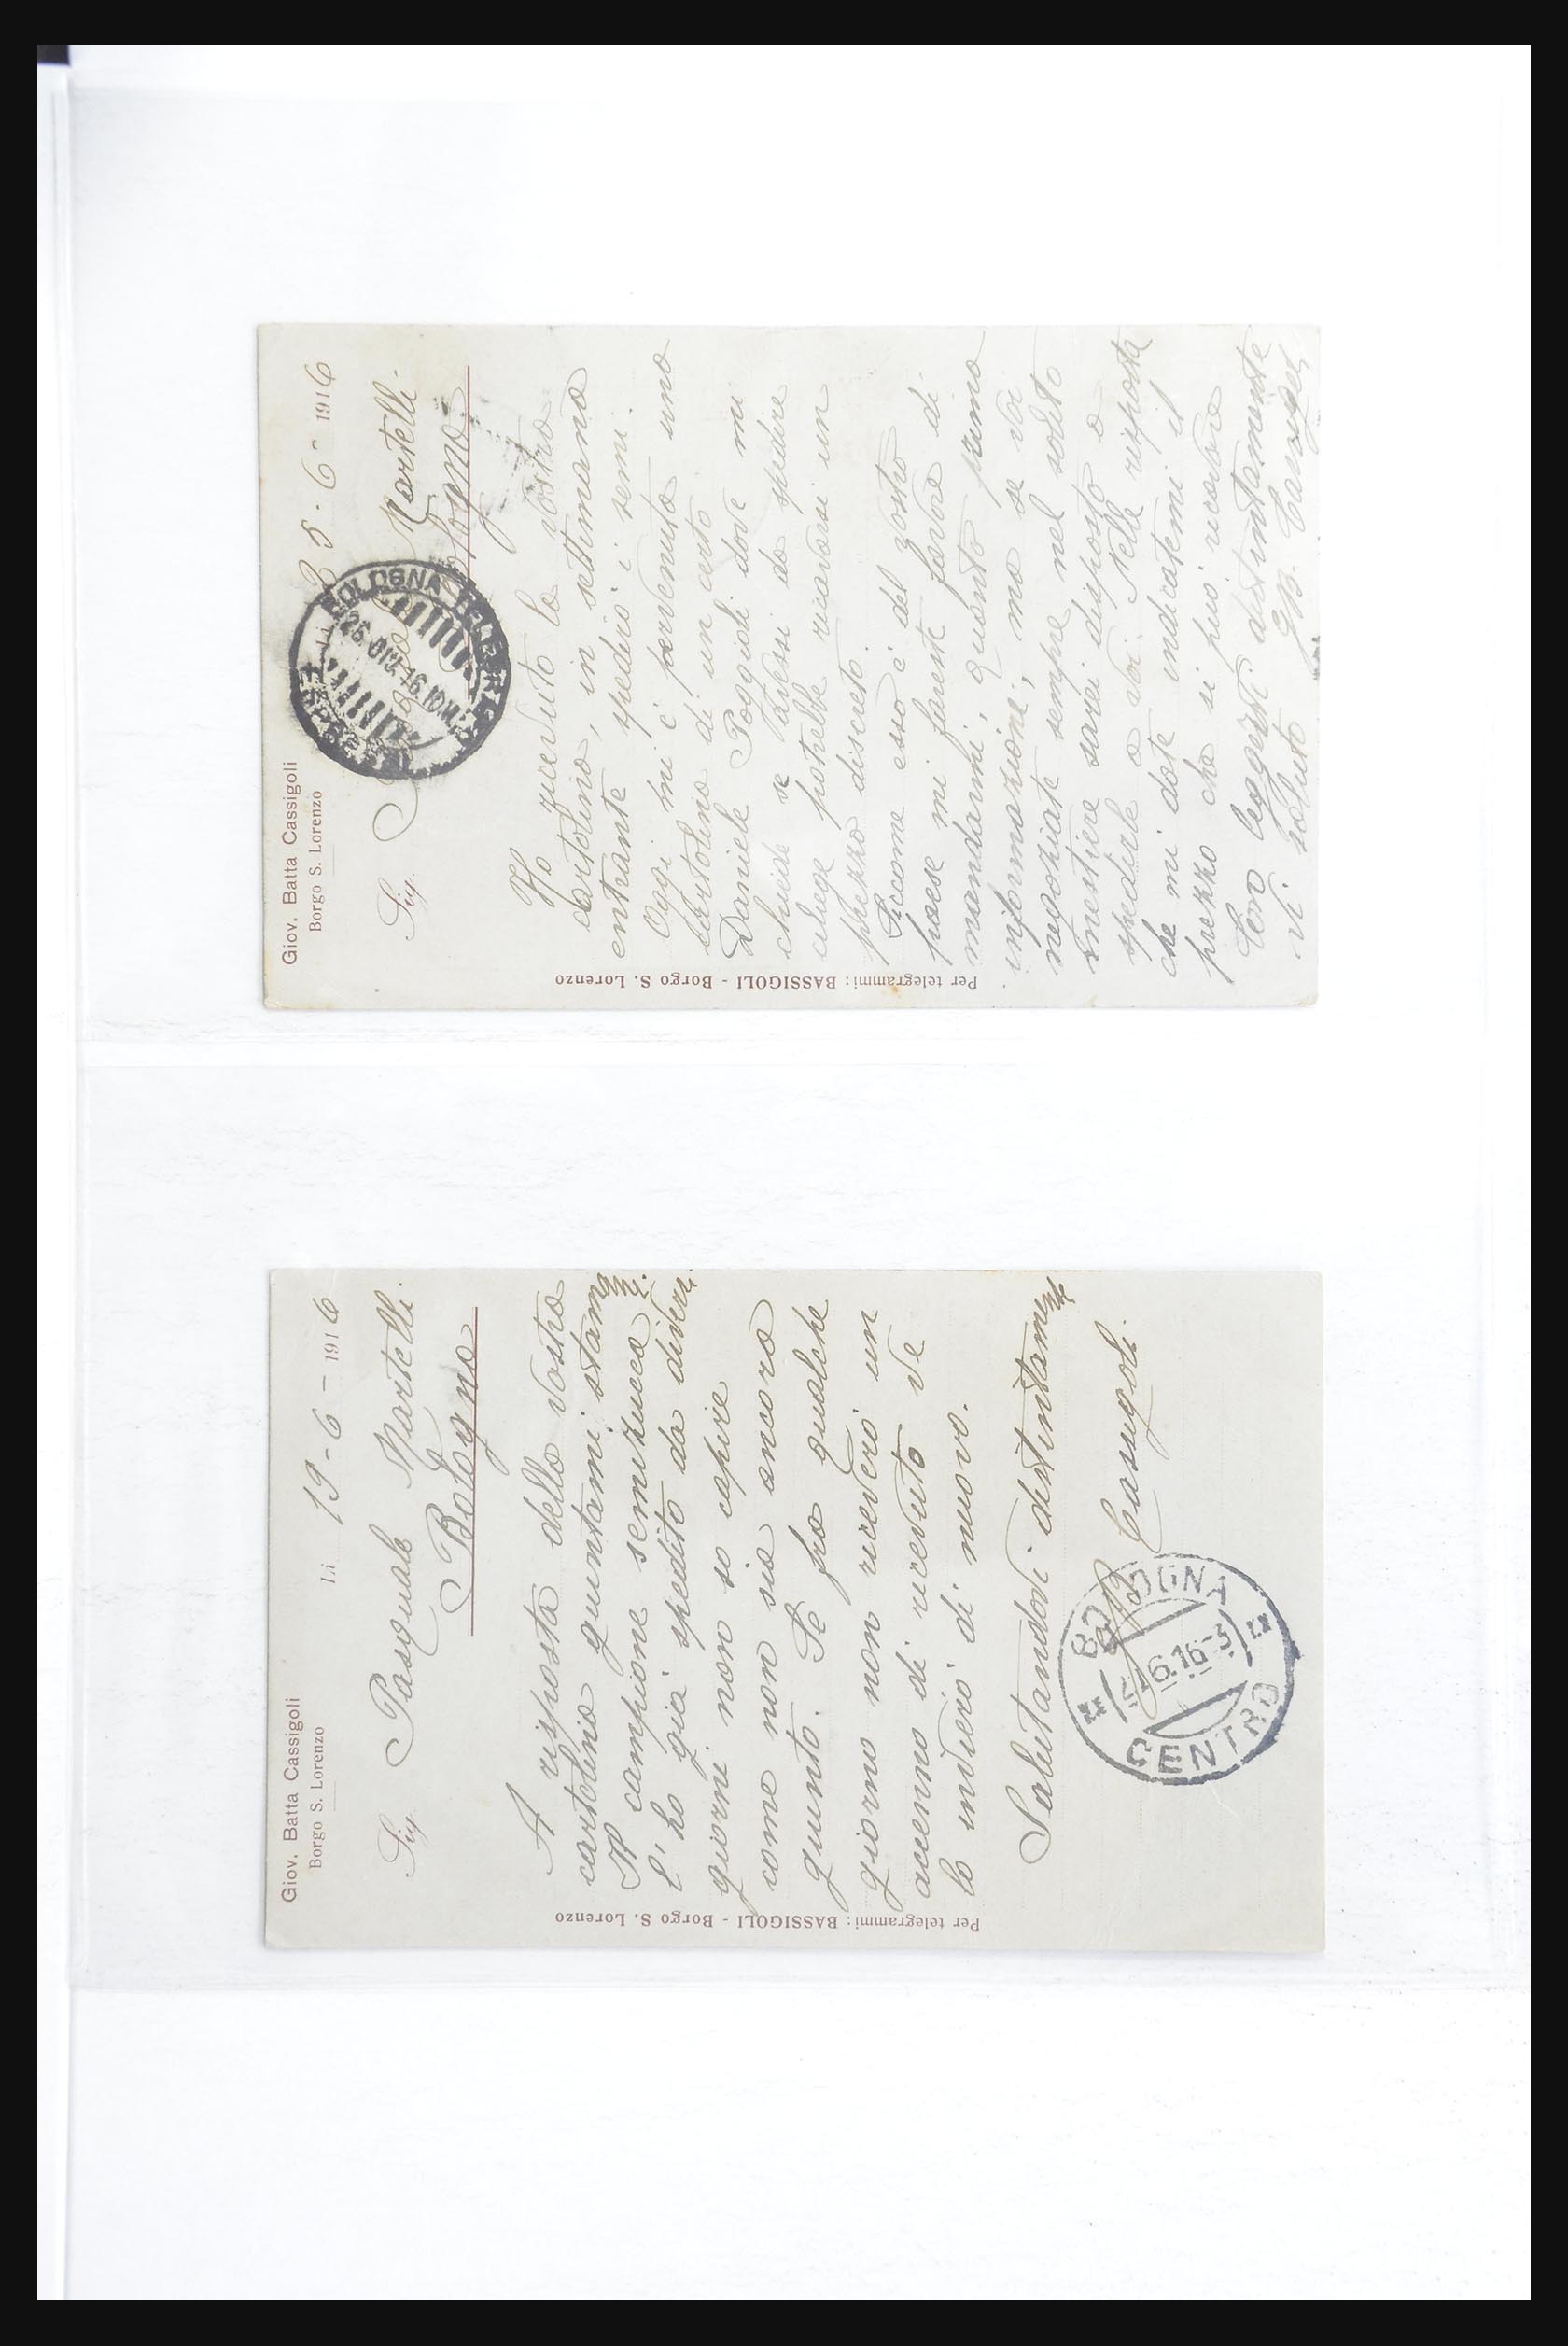 Giov. Batta Cassigoli
Borgo S. Lorenzo
Li 25-6-1916
Sig. Martelli
Bologna
Ho ricevuto la vostra
cartolina, in settimana
entrante spedirò i semi.
Oggi mi è pervenuta una
cartolina di un certo
Daniele Poggioli dove mi
chiede se avessi da spedire
potrebbe ricavarsi un
prezzo discreto.
Siccome esso è del vostro
paese mi fareste favore di
mandarmi, quanto prima
informazioni, ma se voi
negoziate sempre nel solito
mestiere sarei disposto a
spedirle a voi. Nella risposta
che mi date indicatemi il
prezzo che si può ricavare
Con distintamente
vi saluto
GB. Cassigoli
Per telegrammi: BASSIGOLI - Borgo S. Lorenzo
BOLOGNA
Giov. Batta Cassigoli
Borgo S. Lorenzo
Li 19-6-1916
Sig. Pasquale Martelli
Bologna
A risposta della vostra
cartolina giuntami stamani.
Il campione semizucca
l'ho già spedito da diversi
giorni non so capire
come non sia ancora
giunto. Se fra qualche
giorno non riceverò un
accenno di ricevuto ve
lo invierò di nuovo.
Salutandovi distintamente
GB Cassigoli
BOLOGNA
6.16-3
CENTRO
Per telegrammi: BASSIGOLI - Borgo S. Lorenzo